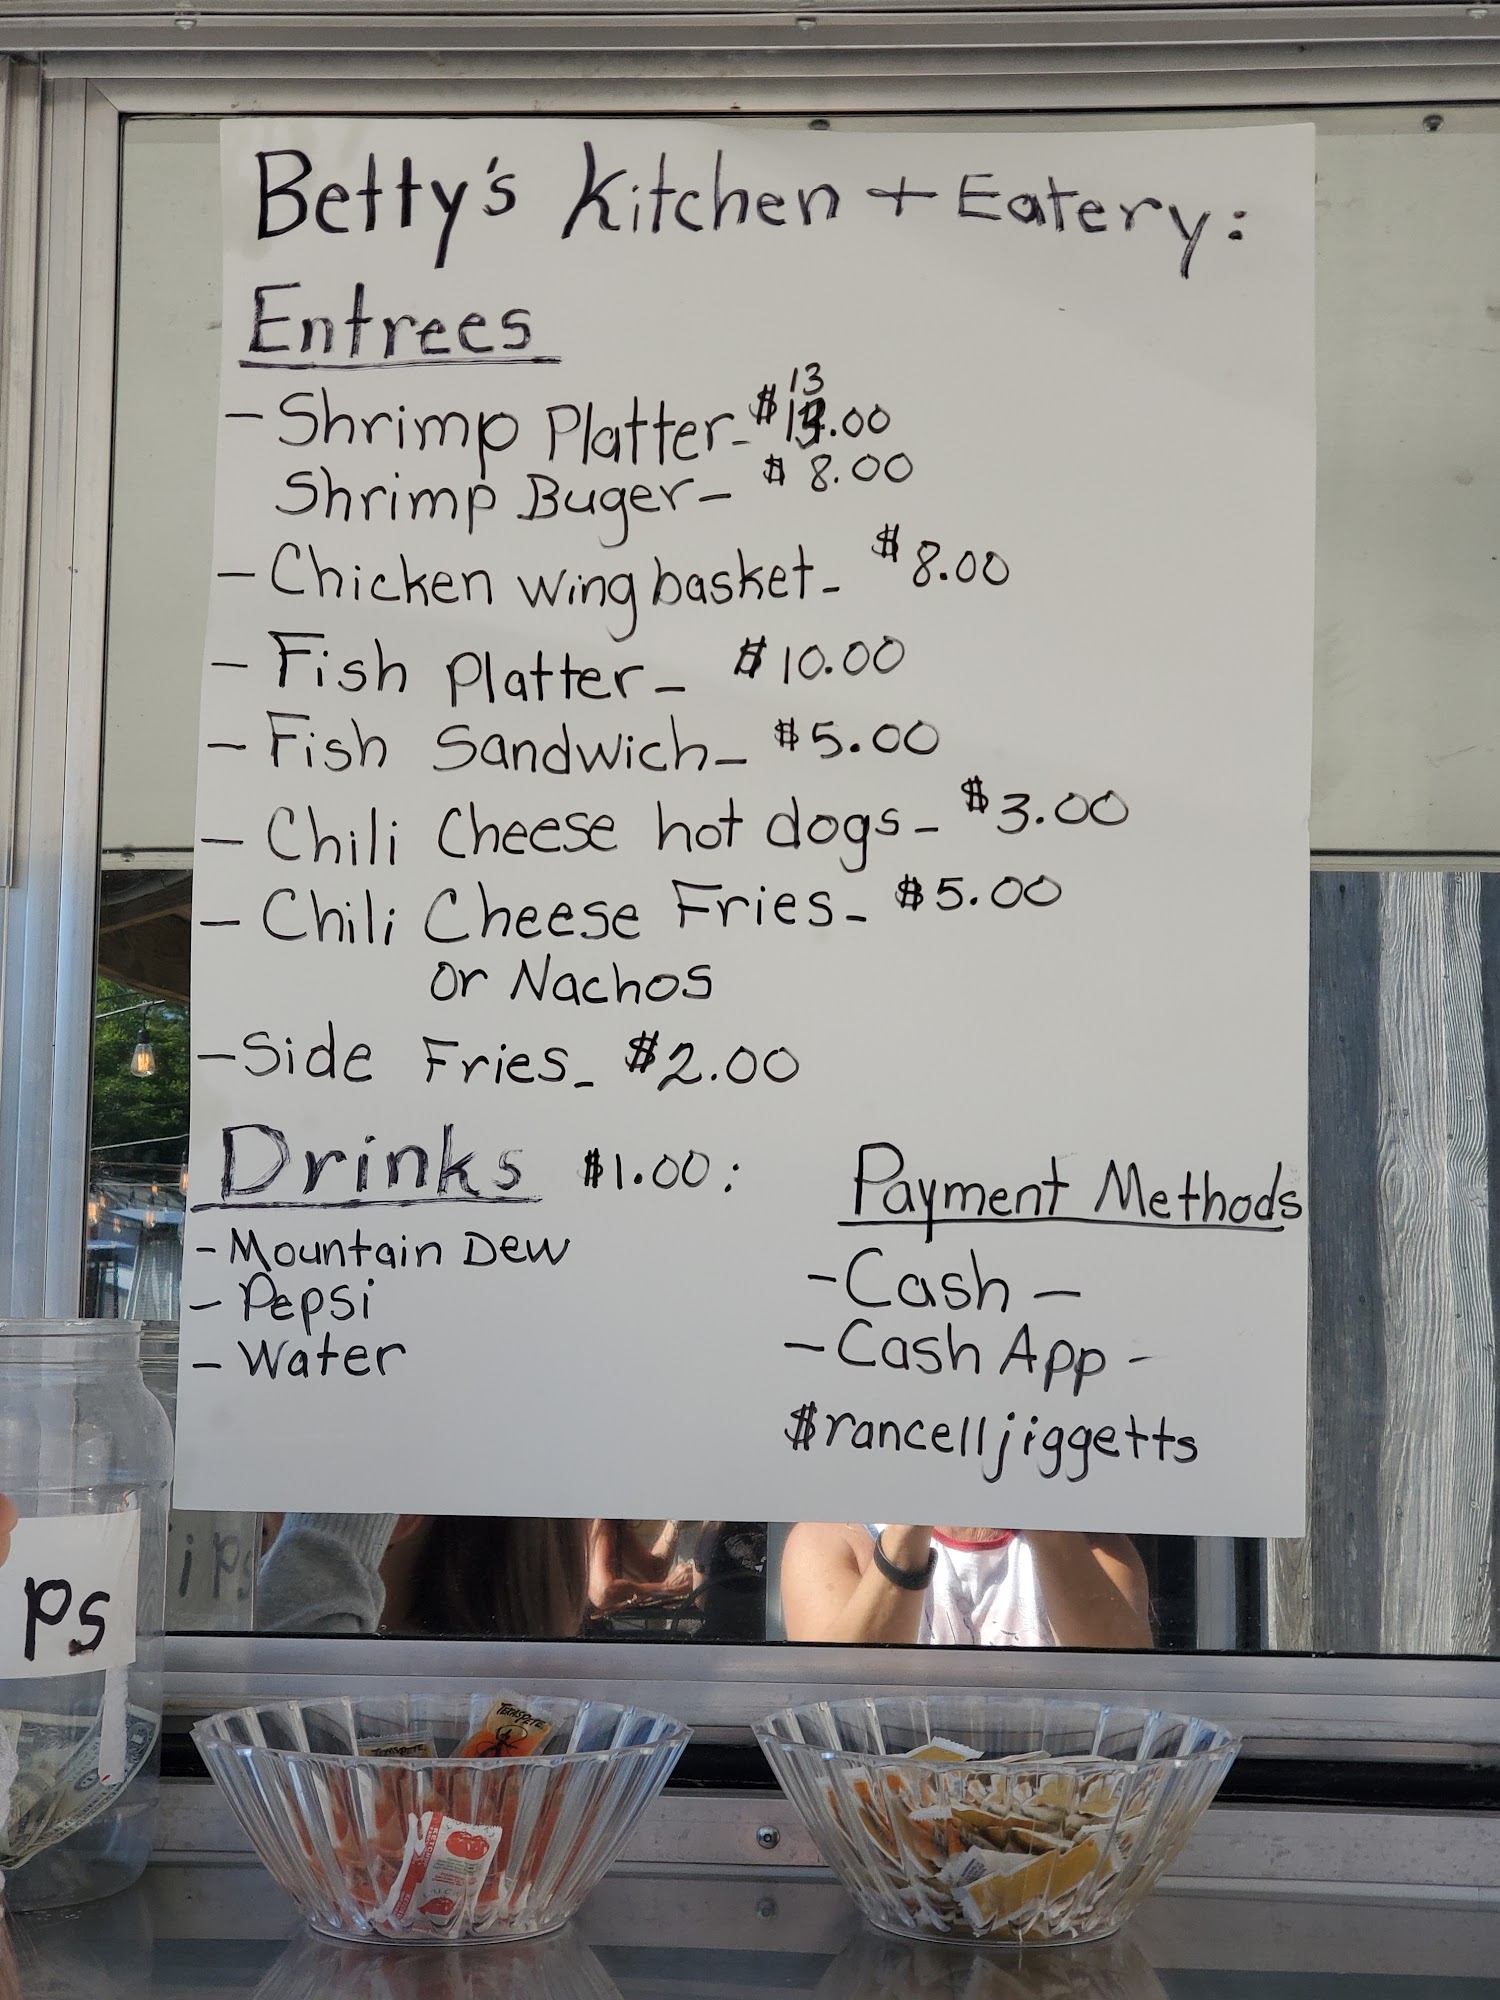 Betty's Kitchen + Eatery:
Entrees
- Shrimp Platter - $13.00
Shrimp Buger - $8.00
- Chicken wing basket - $8.00
- Fish Platter - $10.00
- Fish Sandwich - $5.00
- Chili Cheese hot dogs - $3.00
- Chili Cheese Fries - $5.00
or Nachos
- Side Fries - $2.00
Drinks $1.00:
- Mountain Dew
- Pepsi
- Water
Payment Methods
- Cash -
- Cash App -
$rancelljiggetts
ps
ips
TEXAS PETE
TEXAS PETE